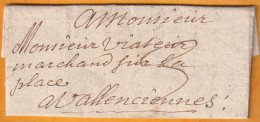 A Monsieur
Monsieur Viateur
marchand sur La
place
a Vallenciennes :